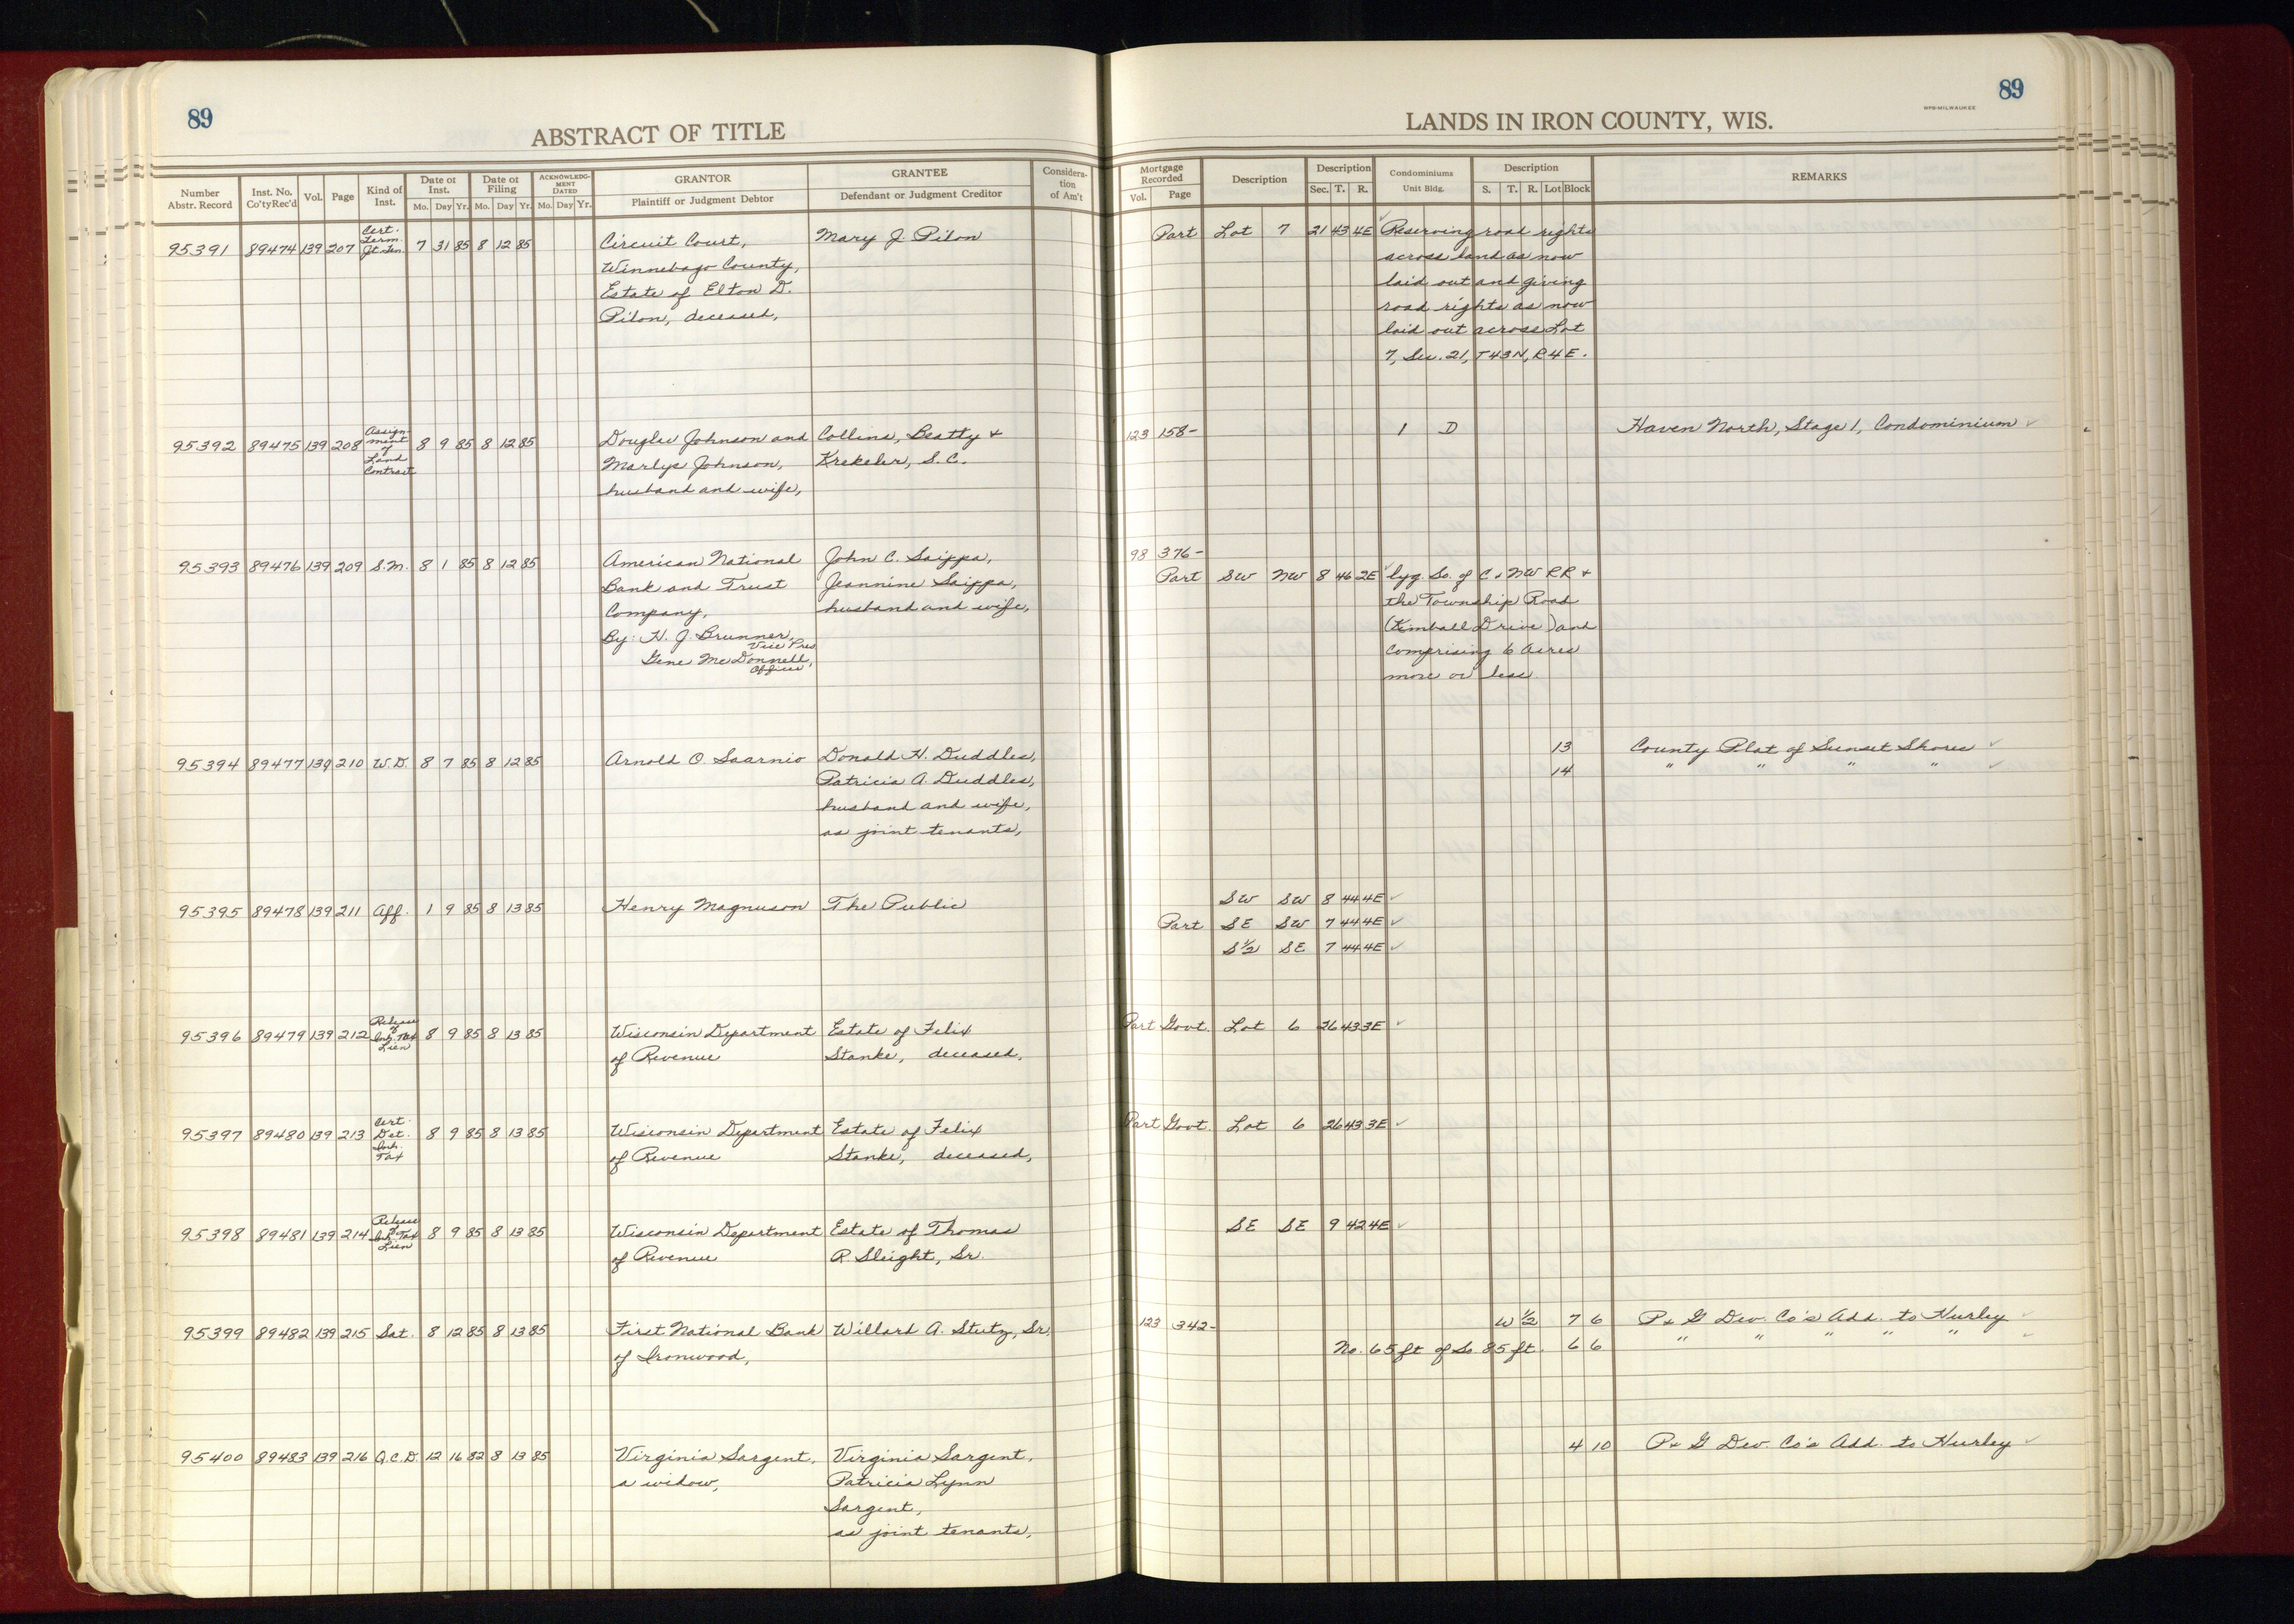 89
ABSTRACT OF TITLE
Number Abstr. Record | Inst. No. Co'ty Rec'd | Vol. | Page | Kind of Inst. | Date of Inst. Mo. Day Yr. | Date of Filing Mo. Day Yr. | ACKNOWLEDGMENT DATED Mo. Day Yr. | GRANTOR Plaintiff or Judgment Debtor | GRANTEE Defendant or Judgment Creditor | Consideration of Am't
95391 89474 139 207 Cert. Term. Jt. Ten. 7 31 85 8 12 85 Circuit Court, Mary J. Pilon
Winnebago County,
Estate of Elton D.
Pilon, deceased,
95392 89475 139 208 Assignment of Land Contract 8 9 85 8 12 85 Douglas Johnson and Collins, Beatty &
Marlys Johnson, Krekeler, S.C.
husband and wife,
95393 89476 139 209 S.M. 8 1 85 8 12 85 American National John C. Saippa,
Bank and Trust Jeannine Saippa,
Company, husband and wife,
By: H. J. Brunner, Vice Pres
Gene McDonnell, Officer
95394 89477 139 210 W.D. 8 7 85 8 12 85 Arnold O. Saarnio Donald H. Duddles,
Patricia A. Duddles,
husband and wife,
as joint tenants,
95395 89478 139 211 Aff. 1 9 85 8 13 85 Henry Magnuson The Public
95396 89479 139 212 Release of Inh. Tax Lien 8 9 85 8 13 85 Wisconsin Department Estate of Felix
of Revenue Stanke, deceased,
95397 89480 139 213 Cert. Det. Inh. Tax 8 9 85 8 13 85 Wisconsin Department Estate of Felix
of Revenue Stanke, deceased,
95398 89481 139 214 Release of Inh. Tax Lien 8 9 85 8 13 85 Wisconsin Department Estate of Thomas
of Revenue R. Sleight, Sr.
95399 89482 139 215 Sat. 8 12 85 8 13 85 First National Bank Willard A. Stutz, Sr.
of Ironwood,
95400 89483 139 216 Q.C.D. 12 16 82 8 13 85 Virginia Sargent, Virginia Sargent,
a widow, Patricia Lynn
Sargent,
as joint tenants,
89
LANDS IN IRON COUNTY, WIS.
Mortgage Recorded Vol. Page | Description | Description Sec. T. R. | Condominiums Unit Bldg. | Description S. T. R. Lot Block | REMARKS
Part Lot 7 21 43 4E Reserving road rights
across land as now
laid out and giving
road rights as now
laid out across Lot
7, Sec. 21, T43N, R4E.
123 158- 1 D Haven North, Stage 1, Condominium
98 376-
Part SW NW 8 46 2E lyg. So. of C & NW RR &
the Township Road
(Kimball Drive) and
comprising 6 acres
more or less
13 County Plat of Sunset Shores
14 " " " "
SW SW 8 44 4E
Part SE SW 7 44 4E
S½ SE 7 44 4E
Part Govt. Lot 6 26 43 3E
Part Govt. Lot 6 26 43 3E
SE SE 9 42 4E
123 342- W ½ 7 6 P & G Dev. Co's Add. to Hurley
No. 65 ft of So. 85 ft. 6 6 " " " " "
4 10 P & G Dev. Co's Add. to Hurley